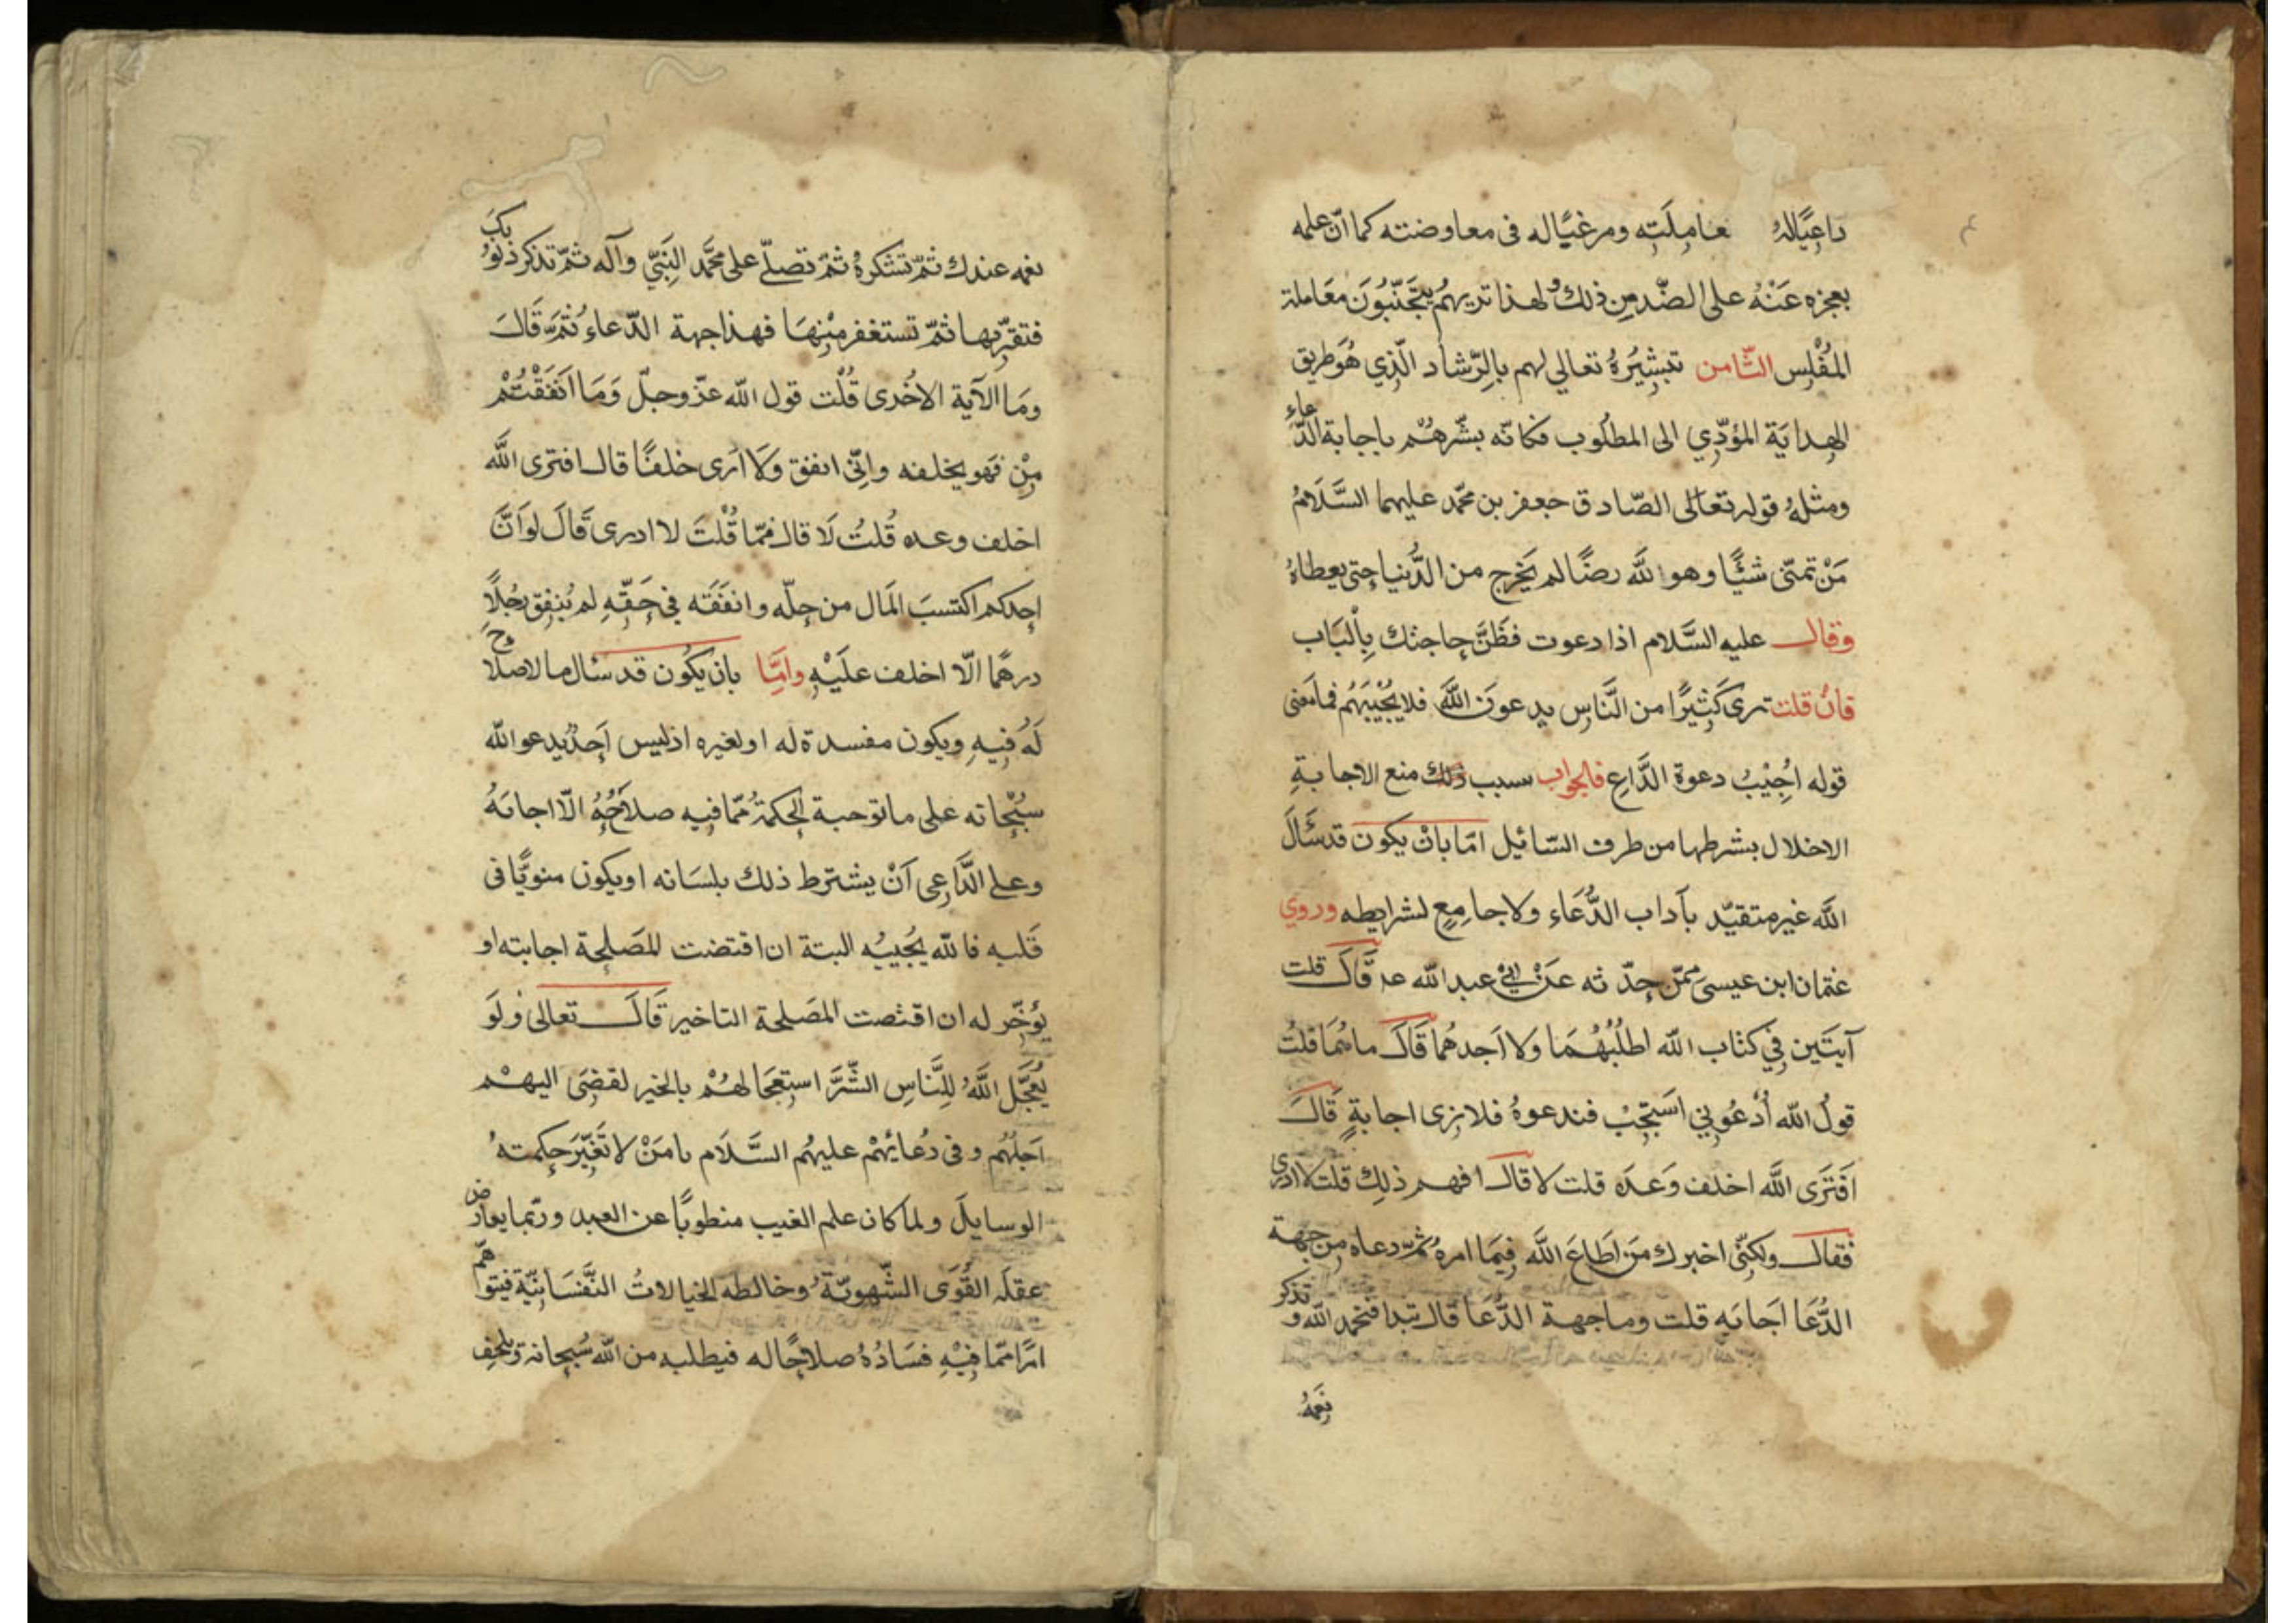 داعيًا له معاملته ومرغبًا له فى معاوضته كما انّ علمه
بعجزه عَنْهُ على الضّد من ذلك ولهذا تريهم يتجَنّبُونَ مَعَاملة
المُفْلِس الثّامن تبشِيرُهُ تعالى لهم بالرّشاد الّذي هُوَ طريق
الهداية المؤدّي الى المطلوب فكانّه بشّرهُم باجابة الدّعاء
ومثلهُ قوله تعَالى الصّادق جعفر بن محمّد عليهما السَّلَامُ
مَنْ تمنّى شيئًا وهو للّه رضًا لم يَخرج من الدُّنيا حتى يعطاهُ
وقال عليه السَّلام اذا دعوت فظَنَّ حاجتك بِالْبَاب
فانْ قلت نرى كَثِيرًا من النَّاسِ يدعونَ اللّهَ فلا يُجْيْبَهُم فما مَعنى
قوله اُجِيْبُ دعوة الدَّاعِ فالجواب سبب ذلك منع الاجابةِ
الاخلال بشرطها من طرف السّائيل امّا بانْ يكون قد سَئَالَ
اللّه غير متقيّد بآداب الدُّعَاء ولا جامِعٍ لشرايطه وروي
عثمان ابن عيسىَ عمّن حدّثه عَنْ ابْي عبد اللّه ع قَال قلت
آيتَين فِي كتاب اللّه اطلُبُهُمَا وَلا اَجدهُما قَالَ ما هُمَا قلتُ
قولُ اللّه اُدْعُوني اَسْتَجِبْ فندعوهُ فلا نرى اجابةٍ قَالَ
اَفتَرَى اللّه اخلف وَعدَه قلت لا قال افهم ذلِك قلت لا ادرى
فقال ولكنّى اخبرك مَن اَطاعَ اللّه فِيمَا امرهُ ثمّ دعاه مِن جهة
الدُّعَا اَجَابَه قلت وما جهة الدُّعَا قال تبدا فتحمد اللّه وتذكر
نِعَمَهُ
نعمه عندك ثمّ تشكرهُ ثمّ تصلّى على محمَّد النبَيّ وآله ثمّ تذكر ذنوبكَ
فتقرّ بها ثمّ تستغفر مِنهَا فهذا جهة الدّعاء ثمَّ قَالَ
ومَا الآية الاخُرى قُلْت قول اللّه عزّ وجلّ وَمَا اَنفَقْتُمْ
مِنْ فهو يخلفه وانِّى انفق وَلَا ارى خلفًا قال افترى اللّه
اخلف وعده قُلتُ لَا قال فمّما قُلْتَ لا ادرى قَالَ لو اَنَّ
احدكم اكتسبَ المَال من حِلّه وانفَقَه فِي حَقّهِ لم يُنفِق رجُلًا
درهمًا الّا اخلف علَيْهِ وامَّا بان يكون قد سئال ما لا صلاح
لَهُ فِيهِ ويكون مفسدة له او لغيره اذ ليس اَحدٌ يدعو اللّه
سبُحْانه على ما توجبه الحِكمةُ ممّا فيه صلَاحُهُ الّا اجابَهُ
وعلى الدَّاعِى اَنْ يشترط ذلك بلسَانه او يكون منويًّا فى
قَلبه فاللّه يُجُيبُه البتة ان اقتضت المَصلحة اجابته او
يُؤخّر له ان اقتضت المَصلحة التاخير قَالَ تعالى ولَوَ
يُعَجِّل اللّهُ لِلنَّاسِ الشَّرَّ استِعجَالهُمْ بالخير لقضِىَ اليهْم
اَجَلُهُم وفى دُعائِهُمْ عليهُم السَّلَام يا مَنْ لا تُغَيّرَ حكمتهُ
الوسايلَ ولما كان علم الغيب منطويًا عن العبد وربّما يعارض
عقلَه القُوَى الشّهويّة وخالطه الخيالاتُ النَّفسَانيّة فيتوهّم
امرًا ممّا فِيْهِ فسَادُهُ صلاحًا له فيطلبه من اللّه سُبحانه ويلحف